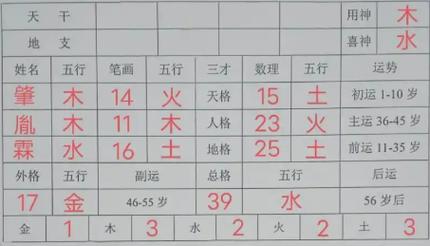 天 干 用神 木
地 支 喜神 水
姓名 五行 笔画 五行 三才 数理 五行 运势
肇 木 14 火 天格 15 土 初运 1-10 岁
胤 木 11 木 人格 23 火 主运 36-45 岁
霖 水 16 土 地格 25 土 前运 11-35 岁
外格 五行 副运 总格 五行 后运
17 金 46-55 岁 39 水 56 岁后
金 1 木 3 水 2 火 2 土 3